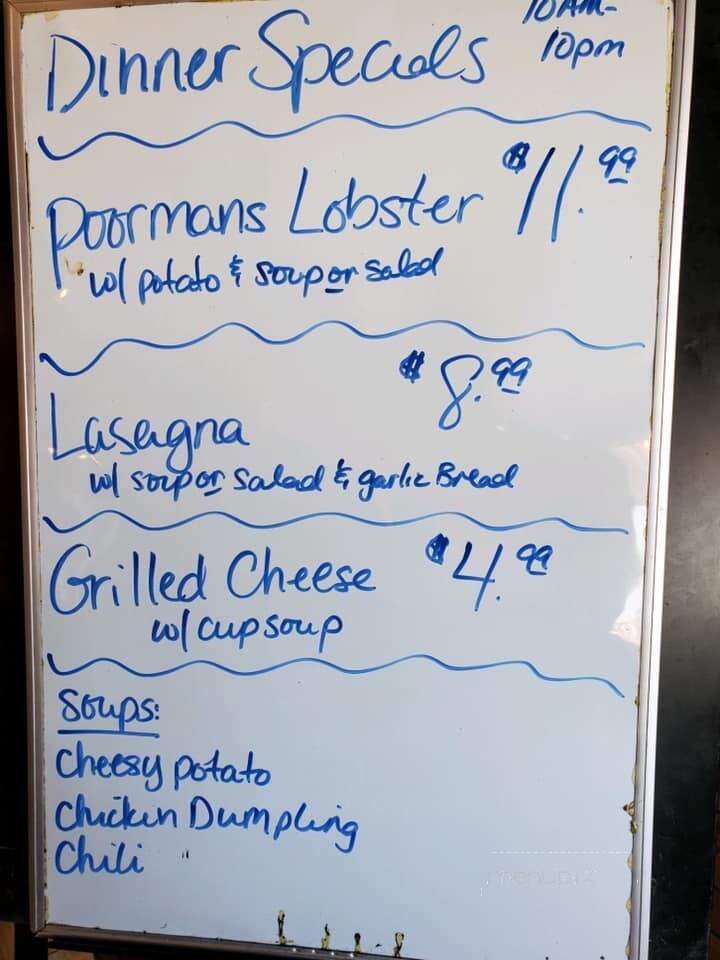 Dinner Specials
10AM-
10pm
poormans Lobster $11.99
w/ potato & soup or salad
$8.99
Lasagna
w/ soup or salad & garlic Bread
Grilled Cheese $4.99
w/ cup soup
Soups:
Cheesy potato
Chicken Dumpling
Chili